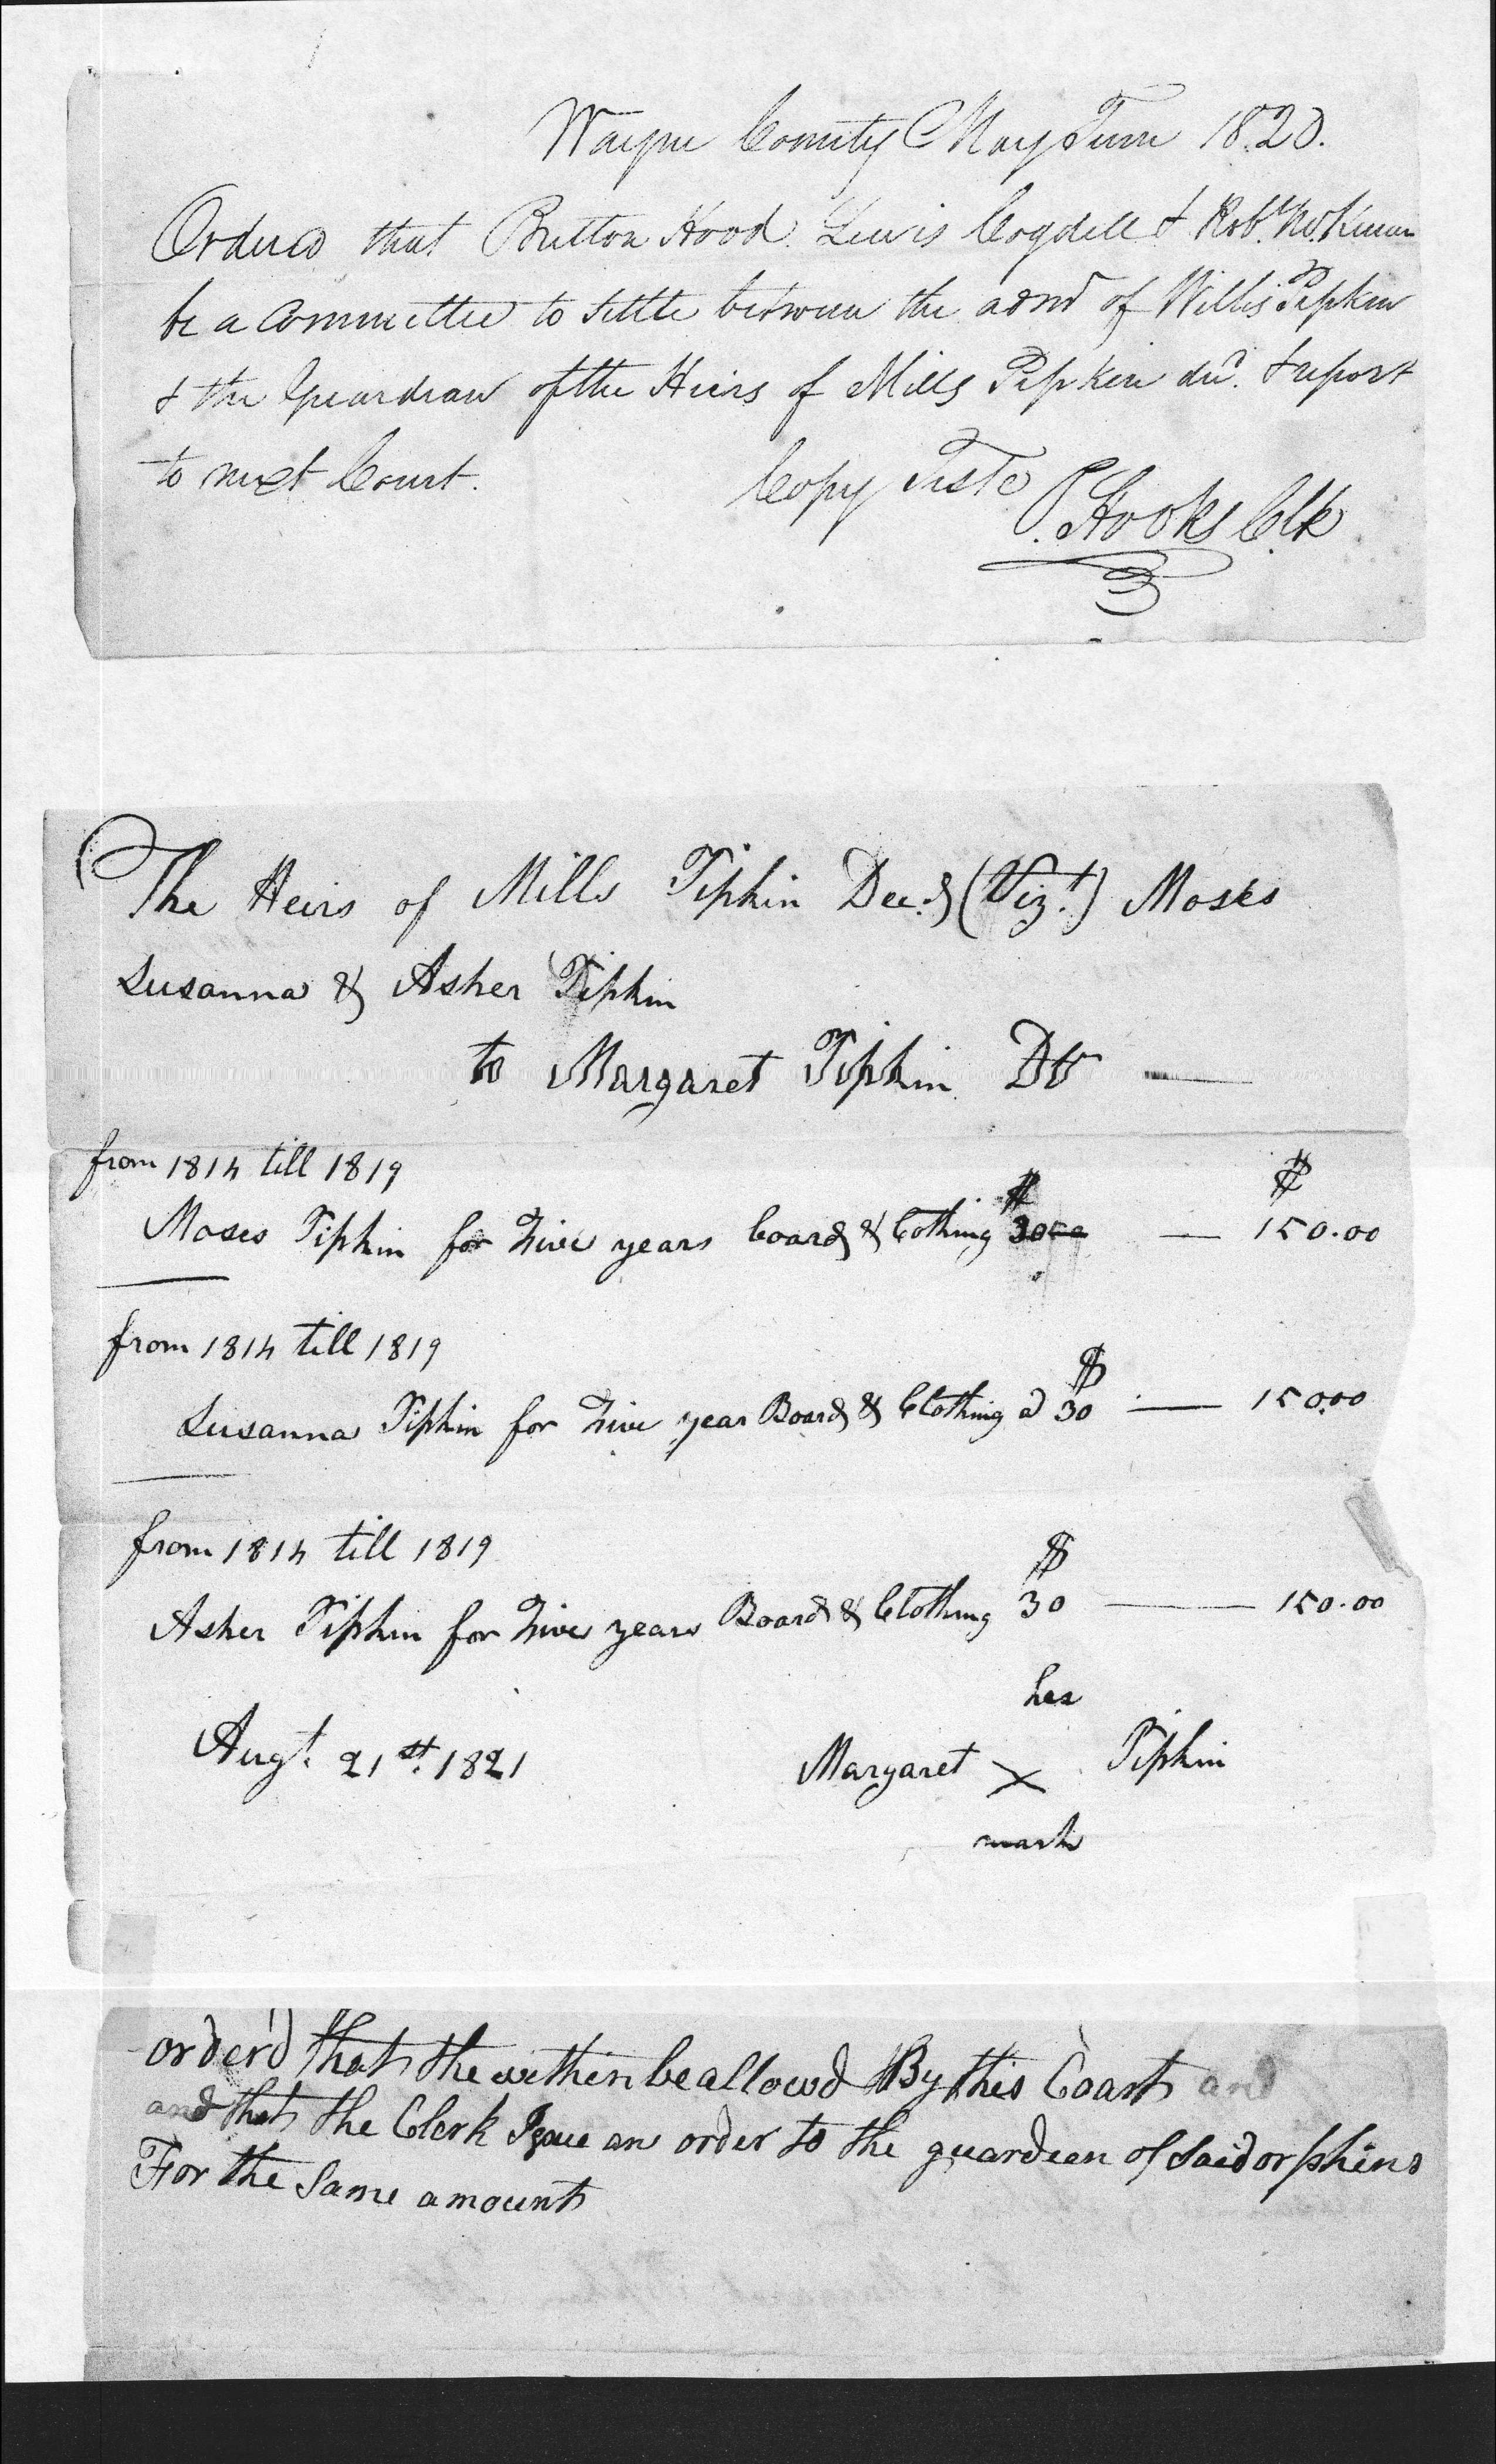 Wayne County May Term 1820.
Ordered that Britton Hood Lewis Cogdell & Robt. McKinne
be a Committee to Settle between the admr of Willis Pipkin
& the Guardian of the Heirs of Mills Pipkin decd. & report
to next Court.
Copy Teste
P. Hooks Clk
The Heirs of Mills Pipkin Decd (Vizt.) Moses
Susanna & Asher Pipkin
to Margaret Pipkin Dr
from 1814 till 1819
$ $
Moses Pipkin for Five years board & Cothing 30 — 150.00
from 1814 till 1819
$
Susanna Pipkin for Five year Board & Clothing a 30 — 150.00
from 1814 till 1819
$
Asher Pipkin for Five years Board & Clothing 30 — 150.00
her
Augt. 21st. 1821 Margaret X Pipkin
mark
orderd that the within be allowd By this Coart and
and that the Clerk Isue an order to the guardean of Said orphins
For the Same amount